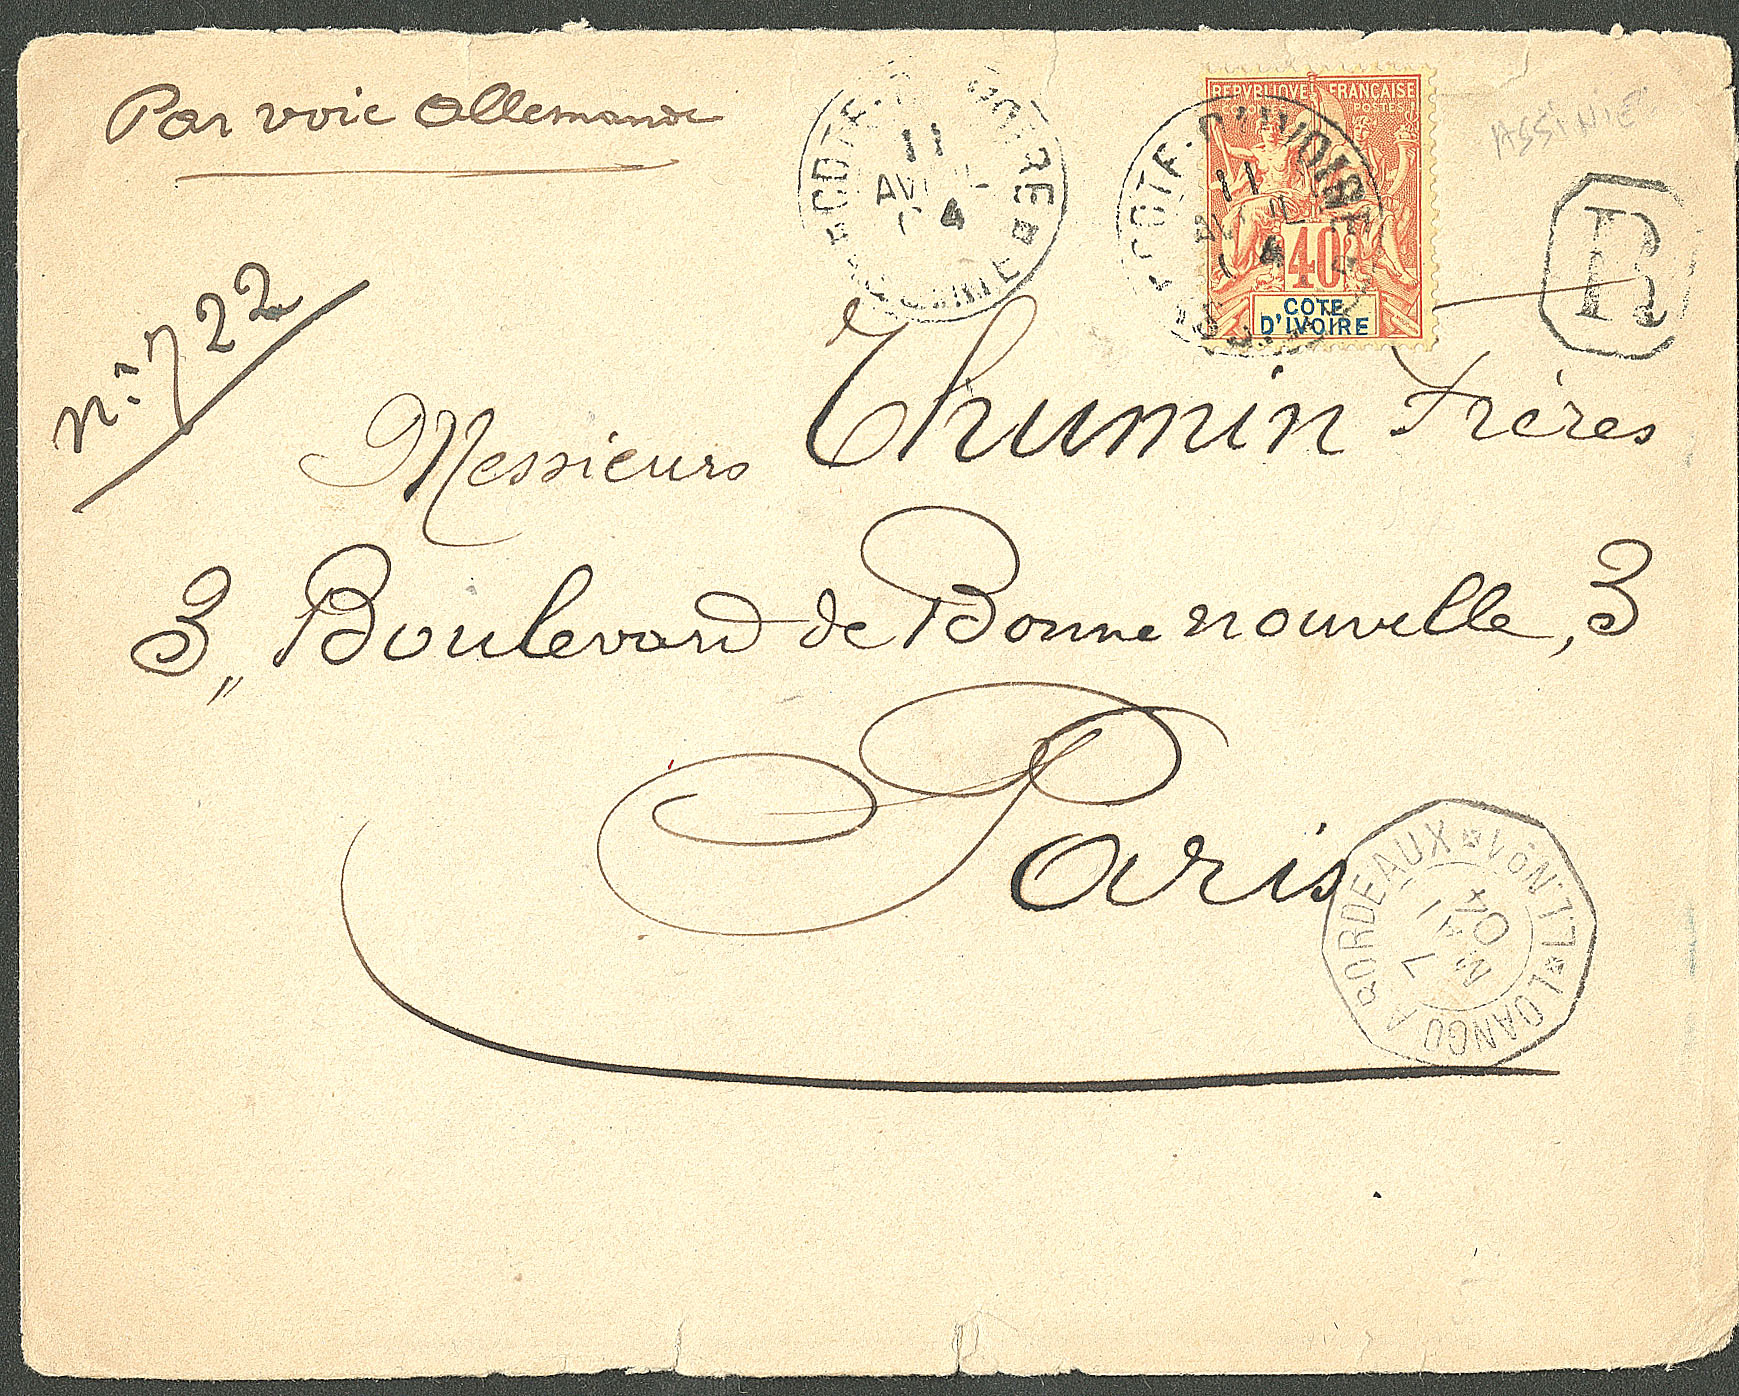 Par voie Allemande
COTE-D'IVOIRE
11
AVRIL
04
ASSINIE
REPVBLIQVE FRANÇAISE
COLONIES POSTES
40
COTE
D'IVOIRE
COTE-D'IVOIRE
11
AVRIL
04
ASSINIE
R
n° 722
Messieurs Thumin Frères
3,, Boulevard de Bonne nouvelle, 3
Paris
LOANGO A BORDEAUX
L.L.N
7
MAI
04